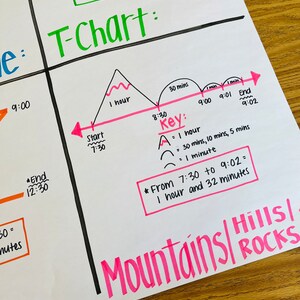 T-Chart:
e:
9:00
*End
12:30
0 =
nutes
1 hour
30 mins
1 min
1 min
Start
7:30
8:30
9:00
9:01
End
9:02
Key:
= 1 hour
= 30 mins, 10 mins, 5 mins
= 1 minute
*From 7:30 to 9:02 =
1 hour and 32 minutes
Mountains/Hills/
ROCKS